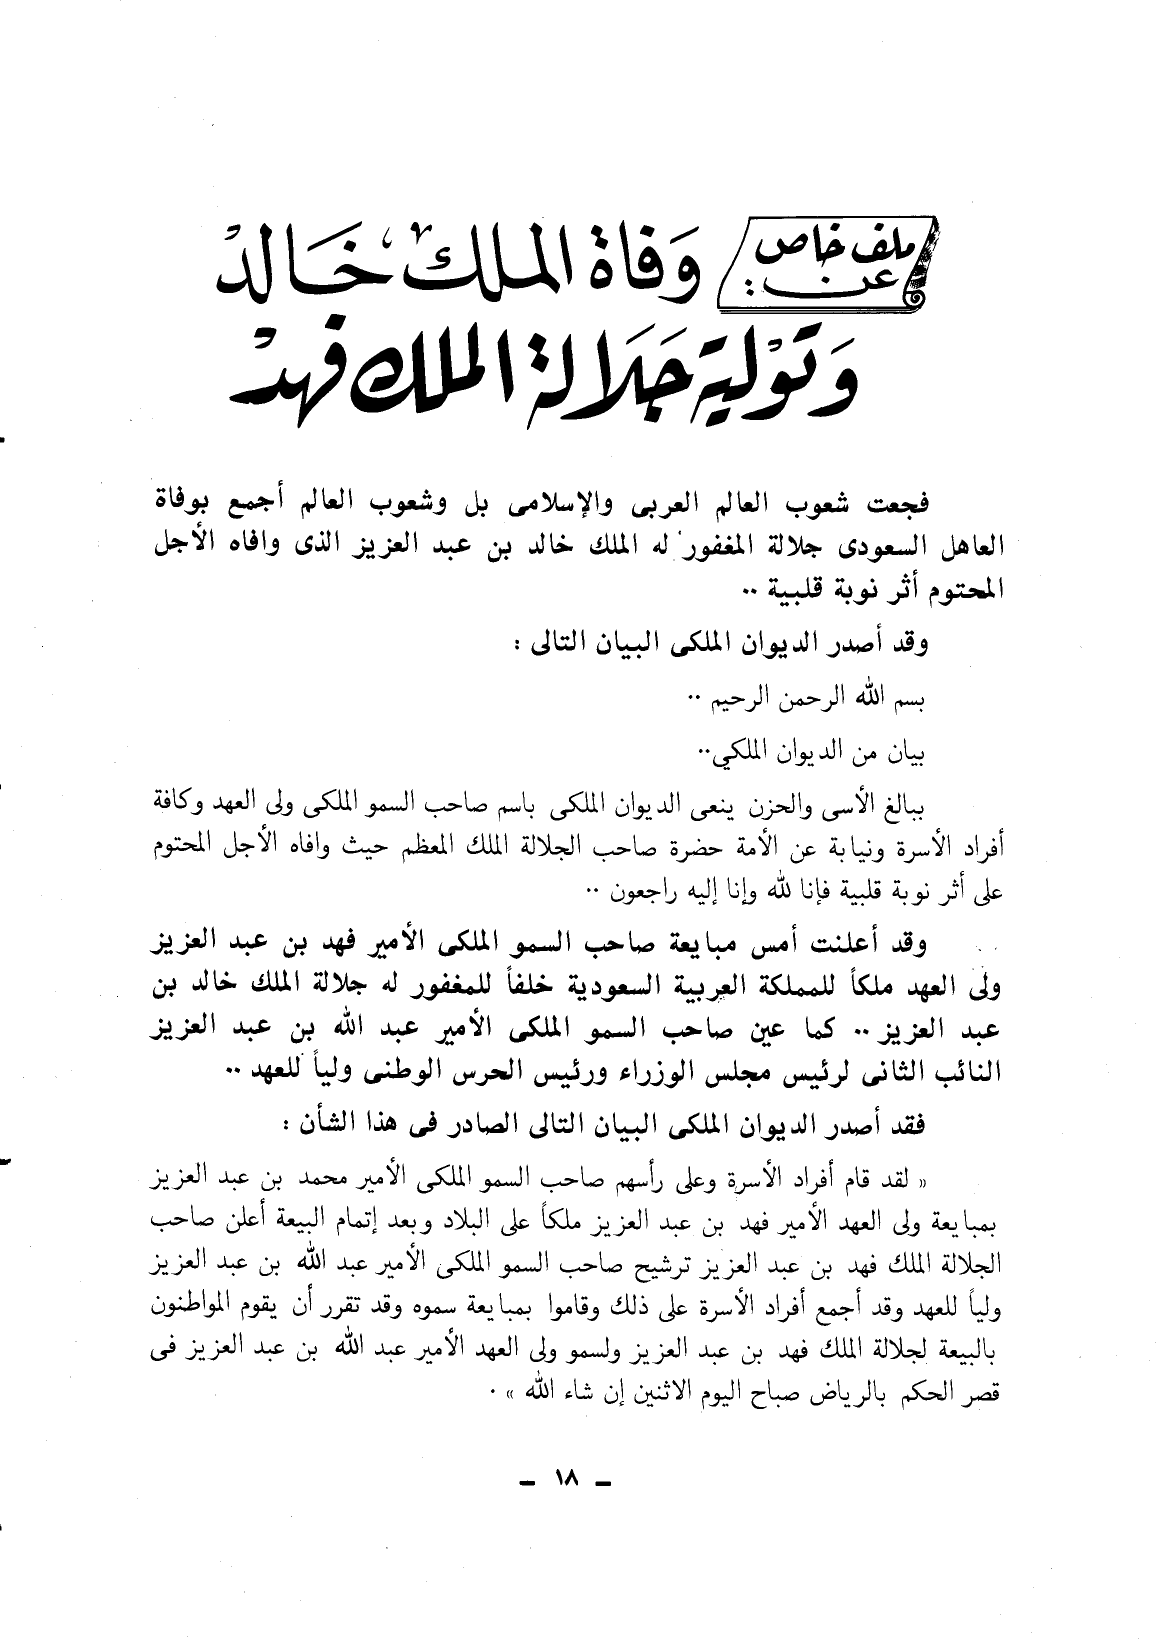 ملف خاص
عن :
وفاة الملك خالد
وتولية جلالة الملك فهد
فجعت شعوب العالم العربى والإسلامى بل وشعوب العالم أجمع بوفاة
العاهل السعودى جلالة المغفور له الملك خالد بن عبد العزيز الذى وافاه الأجل
المحتوم أثر نوبة قلبية ..
وقد أصدر الديوان الملكى البيان التالى :
بسم الله الرحمن الرحيم ..
بيان من الديوان الملكي..
ببالغ الأسى والحزن ينعى الديوان الملكى باسم صاحب السمو الملكى ولى العهد وكافة
أفراد الأسرة ونيابة عن الأمة حضرة صاحب الجلالة الملك المعظم حيث وافاه الأجل المحتوم
على أثر نوبة قلبية فإنا لله وإنا إليه راجعون ..
وقد أعلنت أمس مبايعة صاحب السمو الملكى الأمير فهد بن عبد العزيز
ولى العهد ملكاً للمملكة العربية السعودية خلفاً للمغفور له جلالة الملك خالد بن
عبد العزيز .. كما عين صاحب السمو الملكى الأمير عبد الله بن عبد العزيز
النائب الثانى لرئيس مجلس الوزراء ورئيس الحرس الوطنى ولياً للعهد ..
فقد أصدر الديوان الملكى البيان التالى الصادر فى هذا الشأن :
« لقد قام أفراد الأسرة وعلى رأسهم صاحب السمو الملكى الأمير محمد بن عبد العزيز
بمبايعة ولى العهد الأمير فهد بن عبد العزيز ملكاً على البلاد وبعد إتمام البيعة أعلن صاحب
الجلالة الملك فهد بن عبد العزيز ترشيح صاحب السمو الملكى الأمير عبد الله بن عبد العزيز
ولياً للعهد وقد أجمع أفراد الأسرة على ذلك وقاموا بمبايعة سموه وقد تقرر أن يقوم المواطنون
بالبيعة لجلالة الملك فهد بن عبد العزيز ولسمو ولى العهد الأمير عبد الله بن عبد العزيز فى
قصر الحكم بالرياض صباح اليوم الاثنين إن شاء الله » .
– ١٨ –